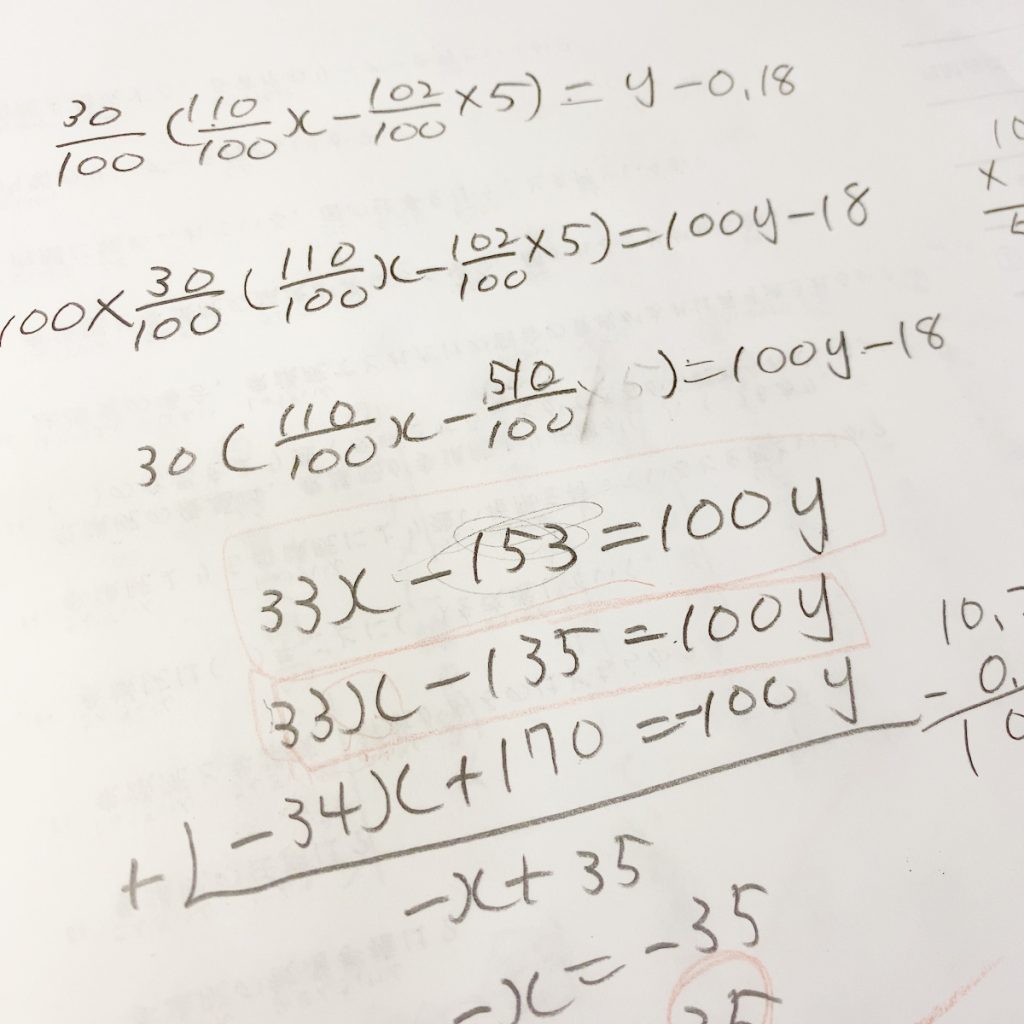 30/100 (110/100 x - 102/100 × 5) = y - 0.18
100 × 30/100 (110/100 x - 102/100 × 5) = 100y - 18
30 (110/100 x - 510/100) = 100y - 18
33x - 153 = 100y
33x - 135 = 100y
-34x + 170 = -100y
+) -x + 35
-x = -35
35